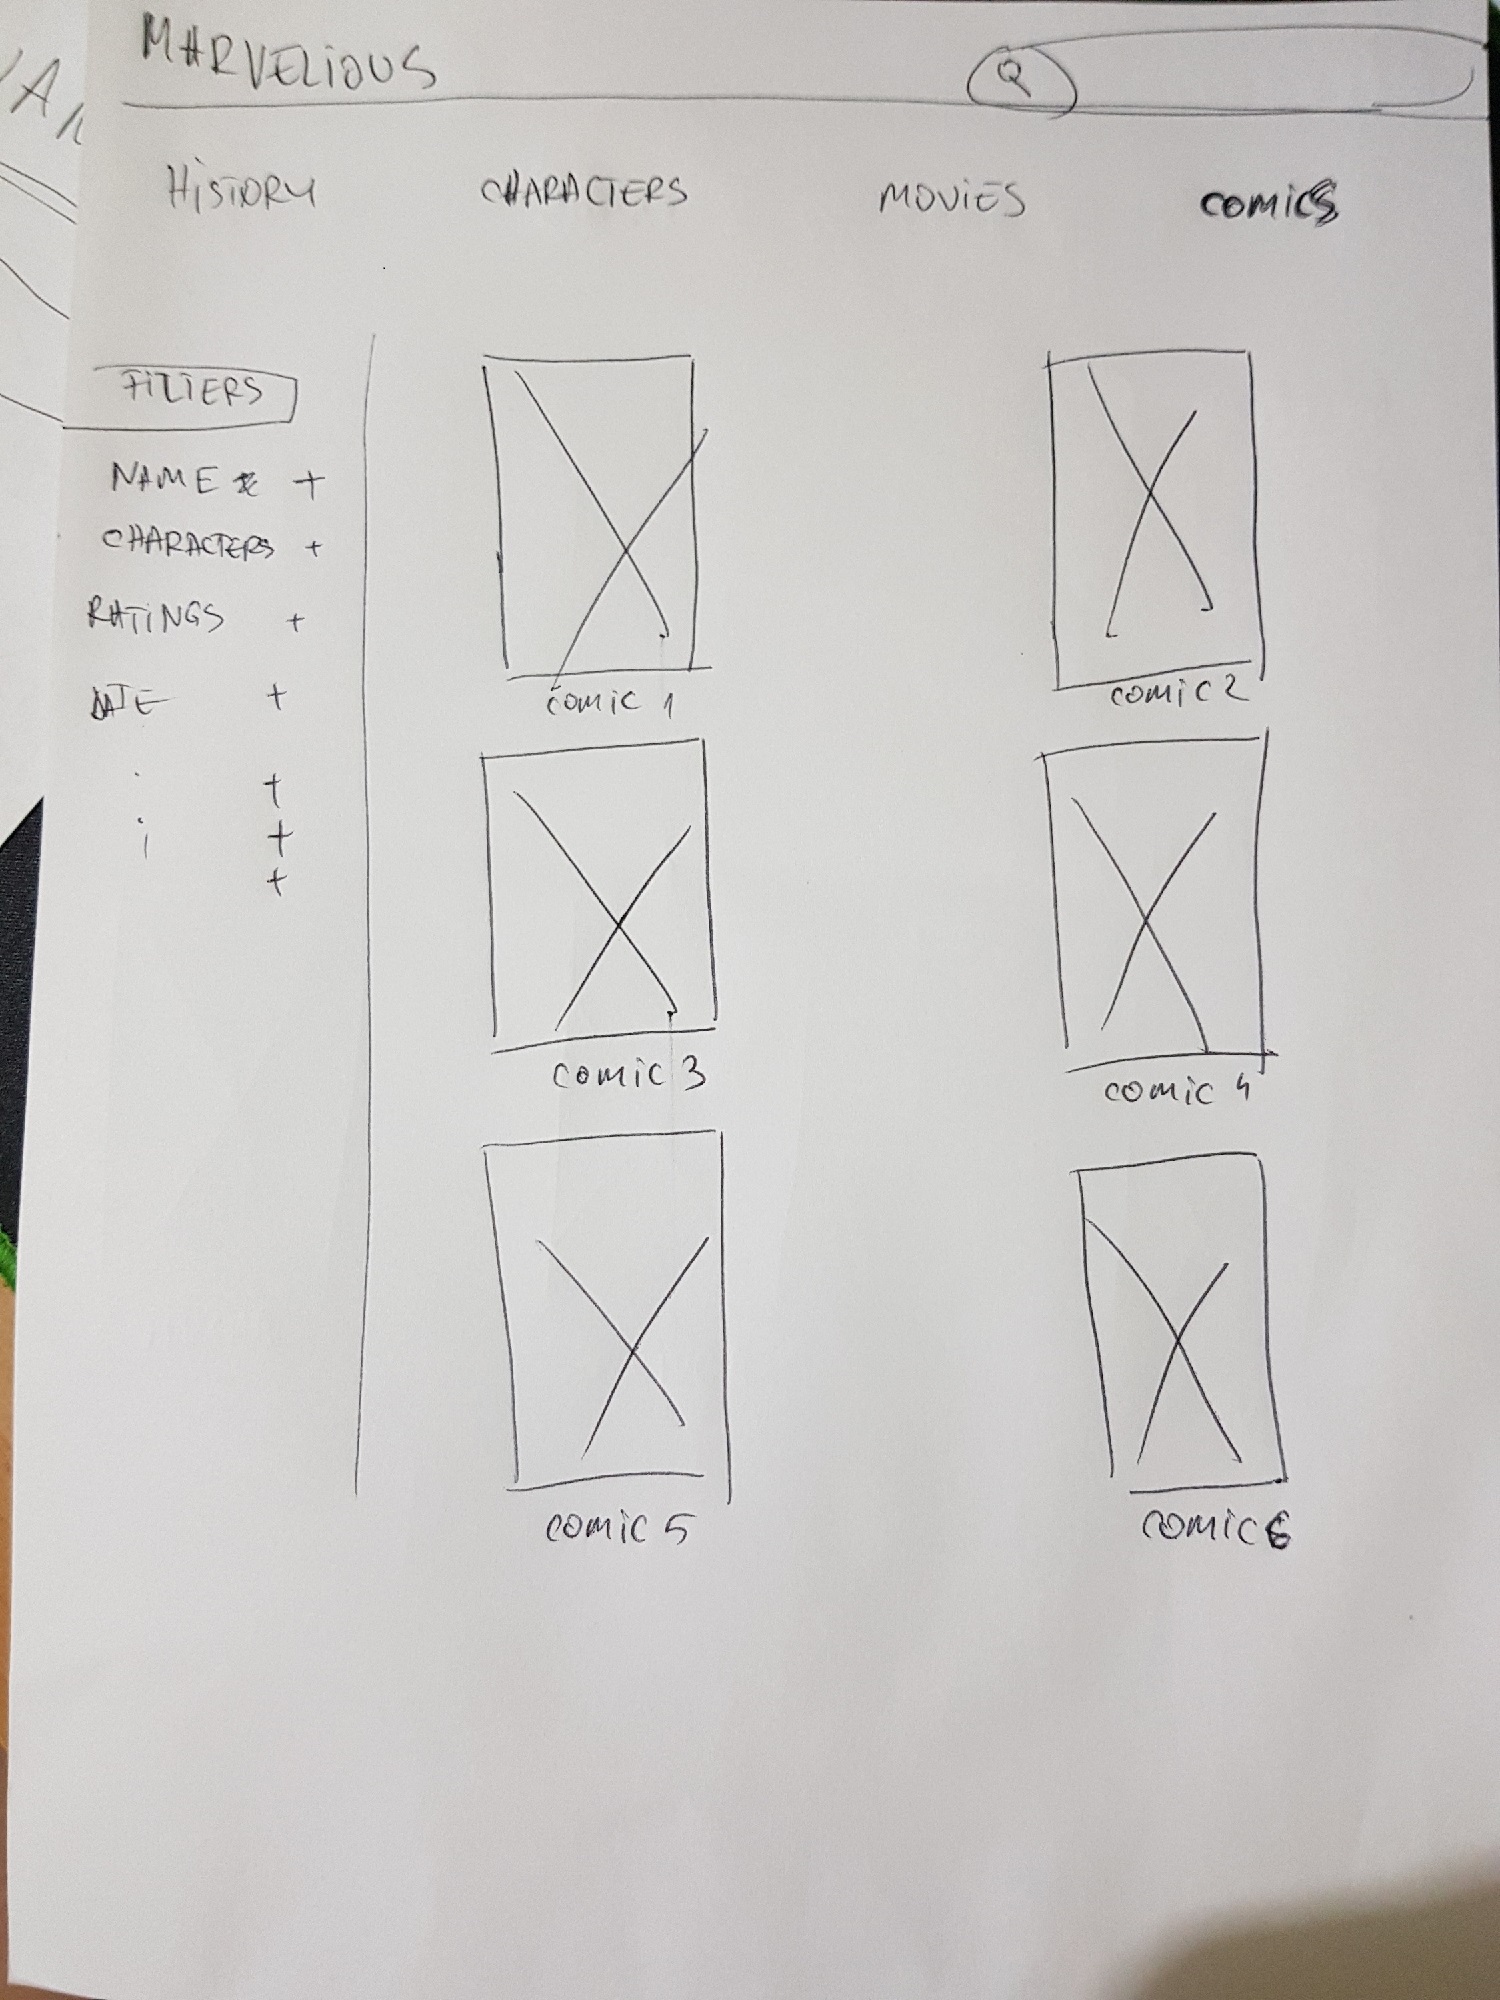 MARVELIOUS
HISTORY CHARACTERS MOVIES COMICS
FILTERS
NAME +
CHARACTERS +
RATINGS +
DATE +
+
+
+
comic 1 comic 2
comic 3 comic 4
comic 5 comic 6